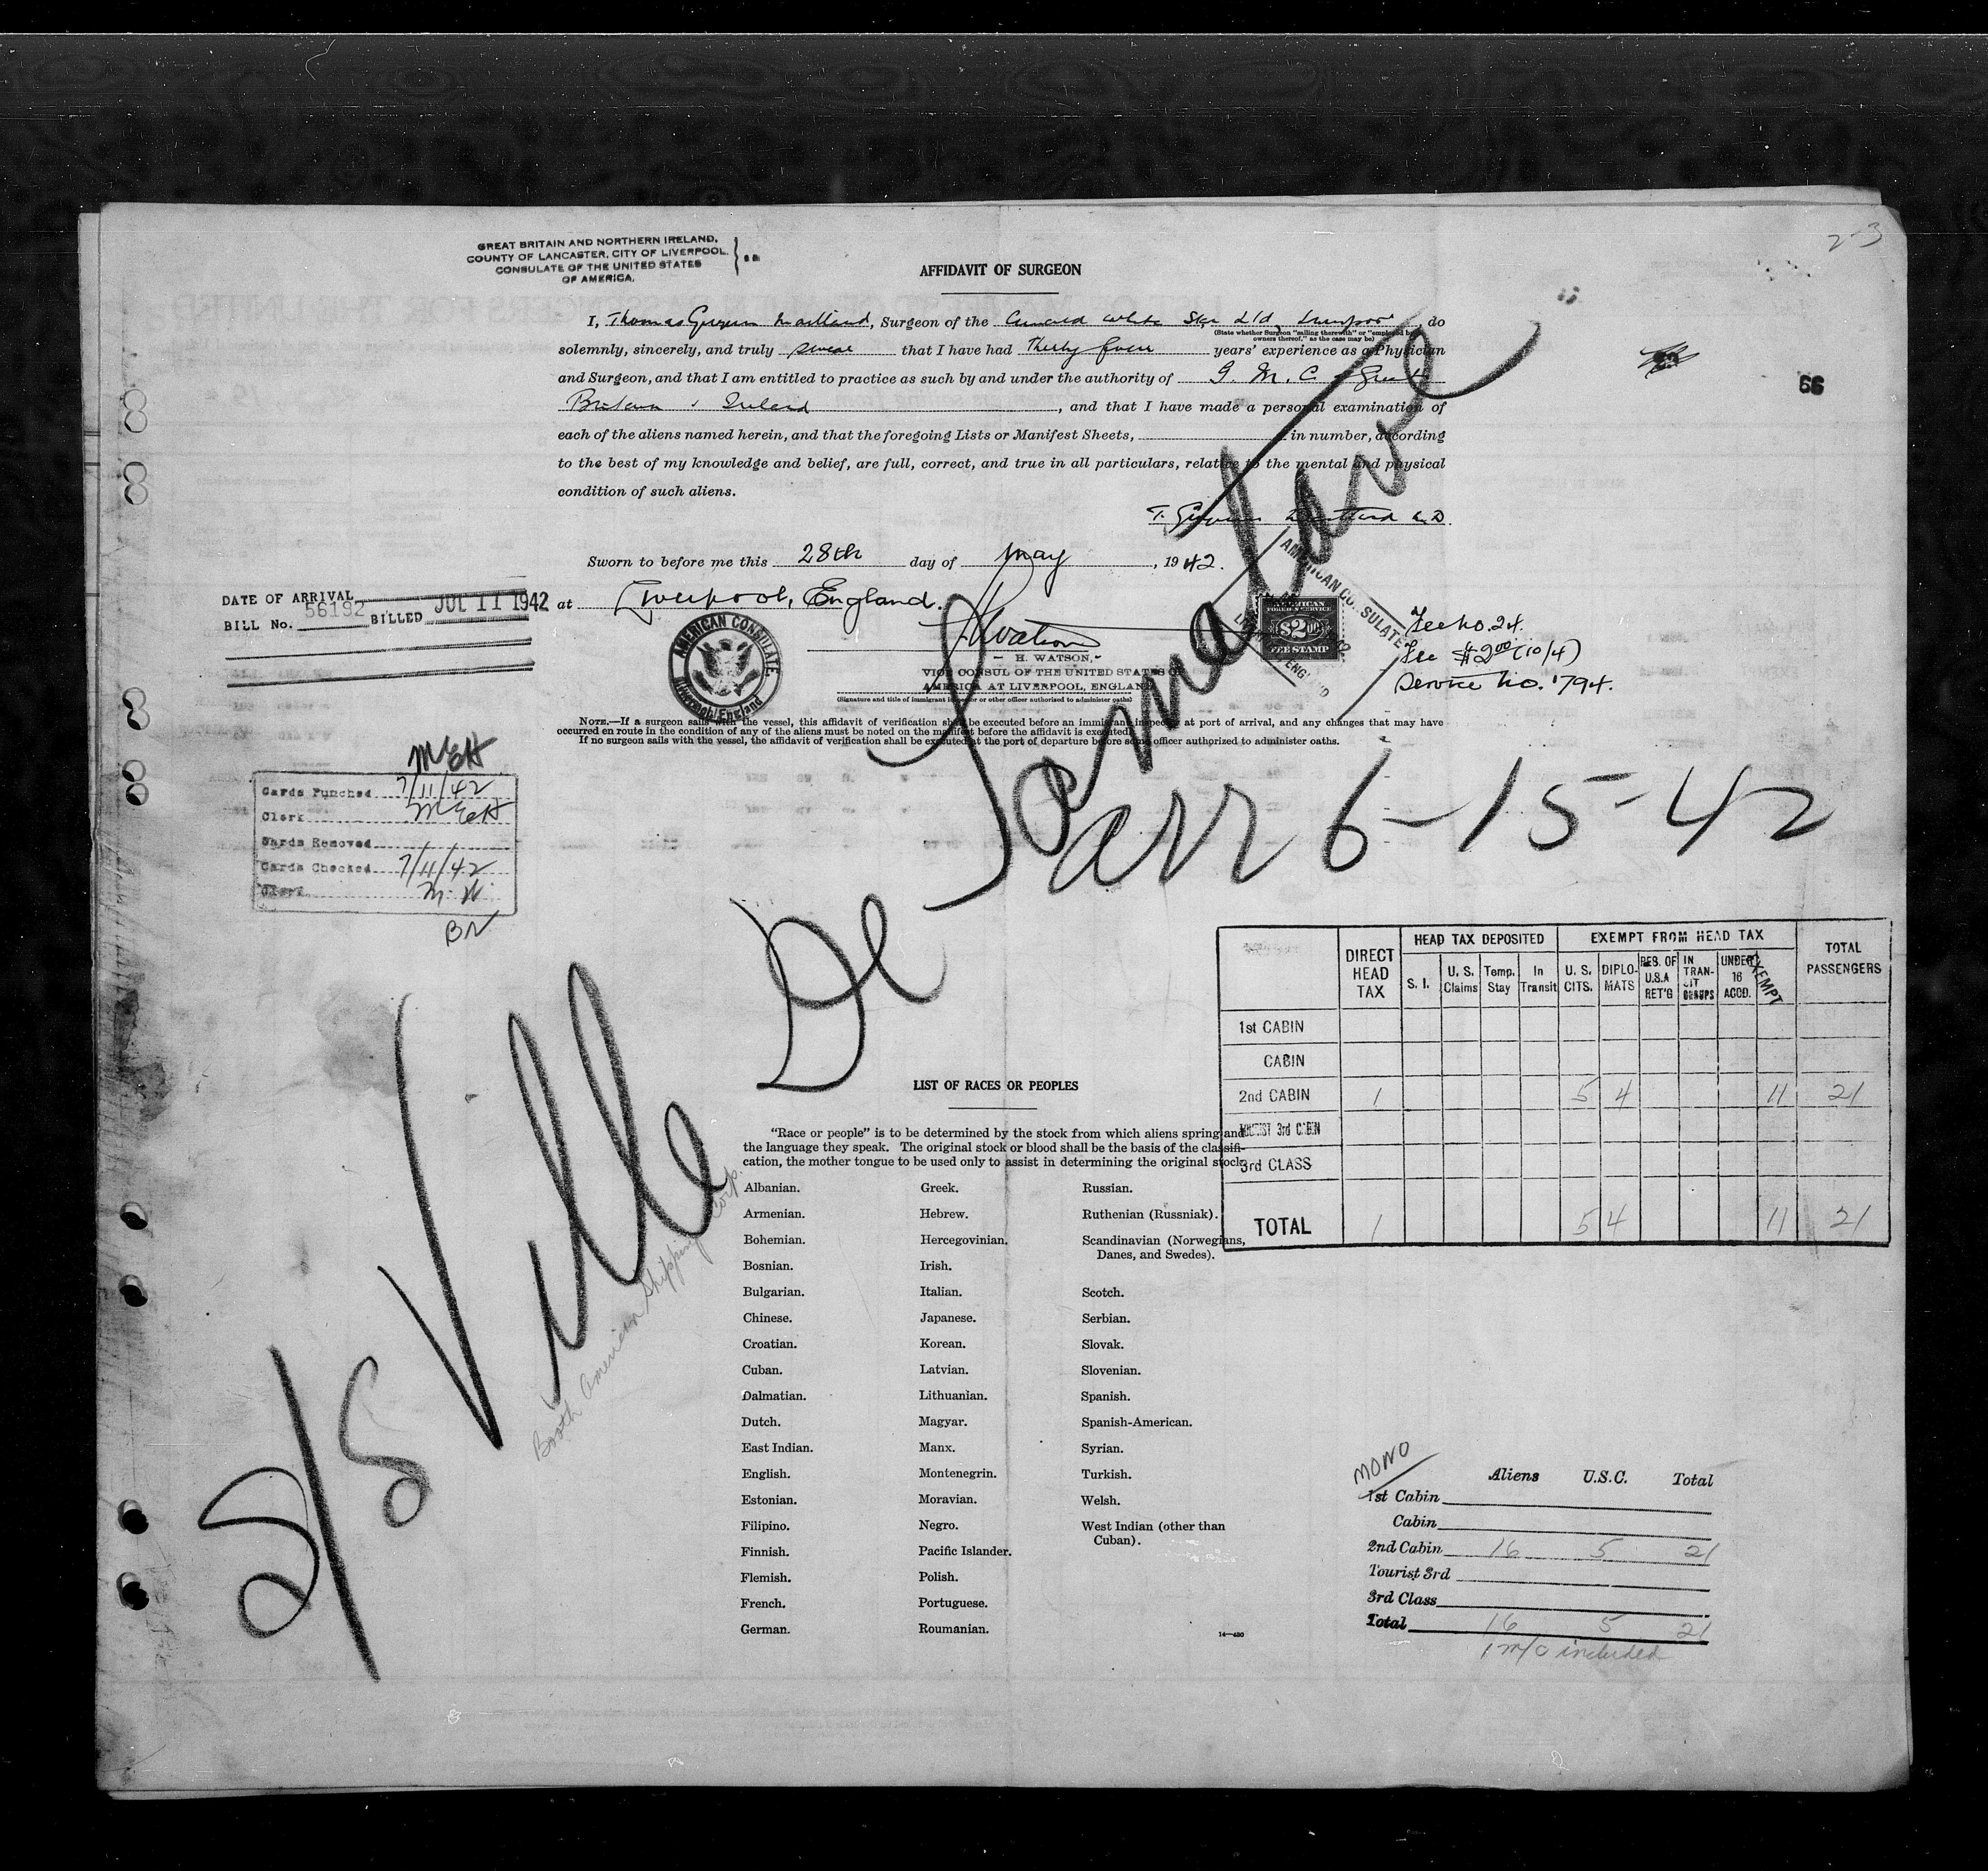 2-3
GREAT BRITAIN AND NORTHERN IRELAND,
COUNTY OF LANCASTER, CITY OF LIVERPOOL
CONSULATE OF THE UNITED STATES
OF AMERICA.
AFFIDAVIT OF SURGEON
I, Thomas Maitland, Surgeon of the Cunard White Star Ltd Liverpool, do
(State whether Surgeon "sailing therewith" or "employed by
owners thereof," as the case may be)
solemnly, sincerely, and truly swear that I have had Thirty four years' experience as a Physician
and Surgeon, and that I am entitled to practice as such by and under the authority of G. M. C. of Great
Britain & Ireland, and that I have made a personal examination of
each of the aliens named herein, and that the foregoing Lists or Manifest Sheets, in number, according
to the best of my knowledge and belief, are full, correct, and true in all particulars, relative to the mental and physical
condition of such aliens.
66
Sworn to before me this 28th day of May, 1942.
at Liverpool, England.
DATE OF ARRIVAL
BILL No. 56192 BILLED JUL 11 1942
AMERICAN CONSULATE.
Liverpool, England
H Watson
- H. WATSON, -
VICE CONSUL OF THE UNITED STATES OF
AMERICA AT LIVERPOOL, ENGLAND
(Signature and title of immigrant inspector or other officer authorized to administer oaths)
AMERICAN
FOREIGN SERVICE
$2.00
FEE STAMP
AMERICAN CONSULATE
Fee No. 24.
Fee $2.00 (10/4)
Service No. 794.
NOTE.—If a surgeon sails with the vessel, this affidavit of verification shall be executed before an immigrant inspector at port of arrival, and any changes that may have
occurred en route in the condition of any of the aliens must be noted on the manifest before the affidavit is executed.
If no surgeon sails with the vessel, the affidavit of verification shall be executed at the port of departure before some officer authorized to administer oaths.
MEH
Cards Punched 7/11/42
Clerk MEH
Cards Removed
Cards Checked 7/11/42
Clerk
BN
S/S Ville De Tamatave
arr 6-15-42
Booth American Shipping Corp.
DIRECT HEAD TAX
HEAD TAX DEPOSITED
S. I.
U. S. Claims
Temp. Stay
In Transit
EXEMPT FROM HEAD TAX
U. S. CITS.
DIPLO-MATS
RES. OF U.S.A RET'G
IN TRAN-SIT GROUPS
UNDER 16 ACCD.
EXEMPT
TOTAL PASSENGERS
1st CABIN
CABIN
2nd CABIN 1 5 4 11 21
TOURIST 3rd CABIN
3rd CLASS
TOTAL 1 5 4 11 21
LIST OF RACES OR PEOPLES
"Race or people" is to be determined by the stock from which aliens spring and
the language they speak. The original stock or blood shall be the basis of the classifi-
cation, the mother tongue to be used only to assist in determining the original stock.
Albanian.
Armenian.
Bohemian.
Bosnian.
Bulgarian.
Chinese.
Croatian.
Cuban.
Dalmatian.
Dutch.
East Indian.
English.
Estonian.
Filipino.
Finnish.
Flemish.
French.
German.
Greek.
Hebrew.
Hercegovinian.
Irish.
Italian.
Japanese.
Korean.
Latvian.
Lithuanian.
Magyar.
Manx.
Montenegrin.
Moravian.
Negro.
Pacific Islander.
Polish.
Portuguese.
Roumanian.
Russian.
Ruthenian (Russniak).
Scandinavian (Norwegians,
Danes, and Swedes).
Scotch.
Serbian.
Slovak.
Slovenian.
Spanish.
Spanish-American.
Syrian.
Turkish.
Welsh.
West Indian (other than
Cuban).
14—480
MONO
Aliens U.S.C. Total
1st Cabin
Cabin
2nd Cabin 16 5 21
Tourist 3rd
3rd Class
Total 16 5 21
1 m/c included